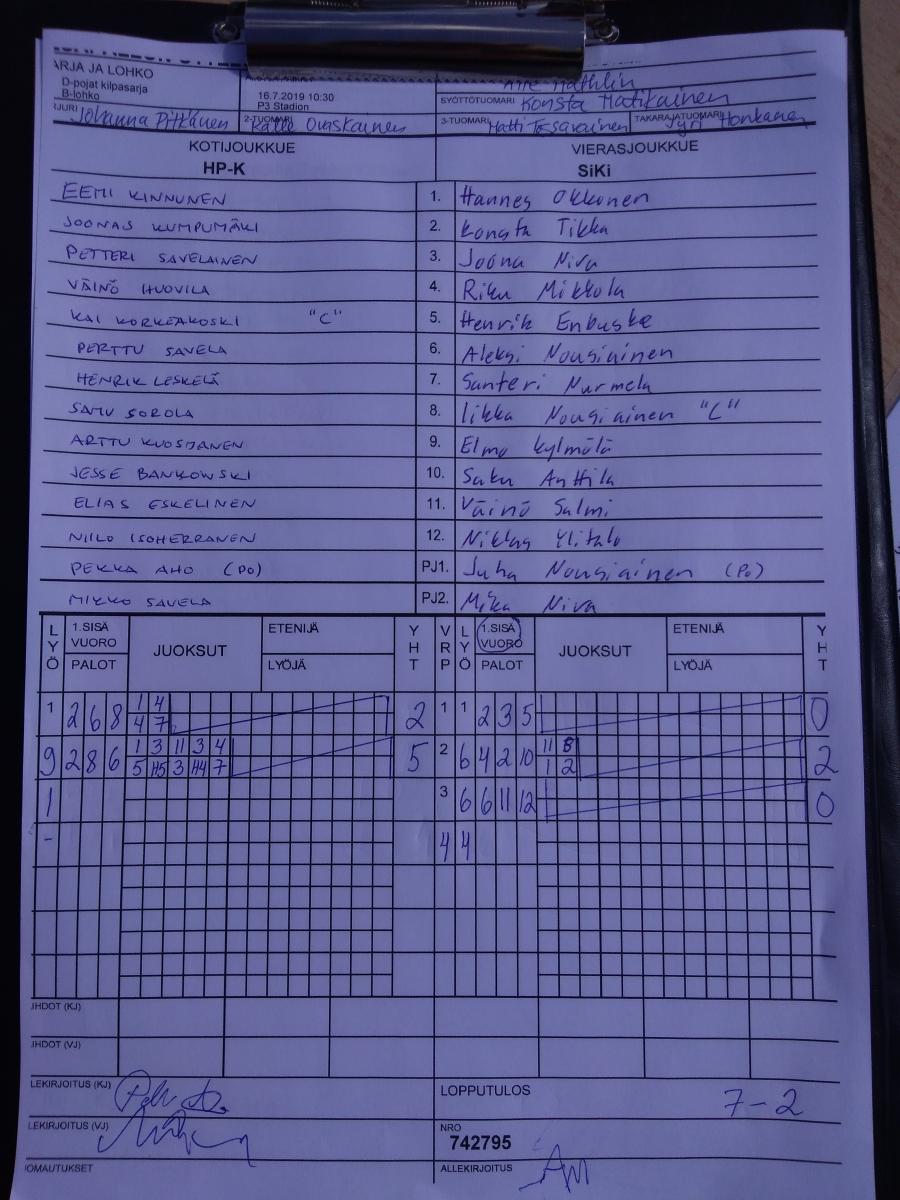 ARJA JA LOHKO
D-pojat kilpasarja
B-lohko
16.7.2019 10:30
P3 Stadion
SYÖTTÖTUOMARI Konsta Matikainen
Johanna Pitkänen 2-TUOMARI Kalle Ovaskainen 3-TUOMARI Matti Tossavainen TAKARAJATUOMARI Jyri Honkanen
KOTIJOUKKUE VIERASJOUKKUE
HP-K SiKi
EEMI KINNUNEN 1. Hannes Okkonen
JOONAS KUMPUMÄKI 2. Konsta Tikka
PETTERI SAVELAINEN 3. Joona Niva
VÄINÖ HUOVILA 4. Riku Mikkola
KAI KORKEAKOSKI "C" 5. Henrik Enbuske
PERTTU SAVELA 6. Aleksi Nousiainen
HENRIK LESKELÄ 7. Santeri Nurmela
SAMU SOROLA 8. Iikka Nousiainen "C"
ARTTU KUOSMANEN 9. Elmo Kylmälä
JESSE BANKOWSKI 10. Saku Anttila
ELIAS ESKELINEN 11. Väinö Salmi
NIILO ISOHERRANEN 12. Niklas Ylitalo
PEKKA AHO (PO) PJ1. Juha Nousiainen (Po)
MIKKO SAVELA PJ2. Mika Niva
LYÖ 1.SISÄ VUORO PALOT JUOKSUT ETENIJÄ LYÖJÄ YHT VRP LYÖ 1.SISÄ VUORO PALOT JUOKSUT ETENIJÄ LYÖJÄ YHT
1 2 6 8 1 4 2 1 1 2 3 5 0
4 7
9 2 8 6 1 3 11 3 4 5 2 6 4 2 10 11 8 2
5 H5 3 H4 7 1 2
1 3 6 6 11 12 0
- 4 4
JHDOT (KJ)
JHDOT (VJ)
LEKIRJOITUS (KJ) LOPPUTULOS 7-2
LEKIRJOITUS (VJ) NRO
742795
OMAUTUKSET ALLEKIRJOITUS AM